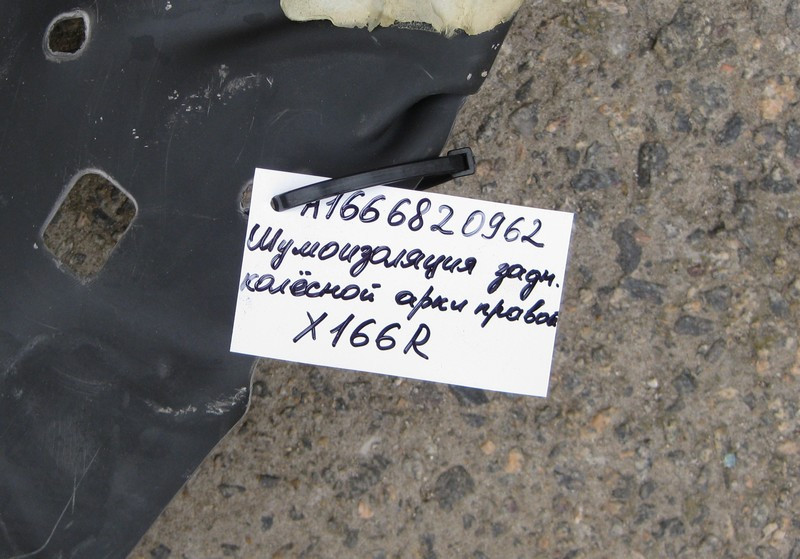 A1666820962
Шумоизоляция задн.
колёсной арки правой
X166R